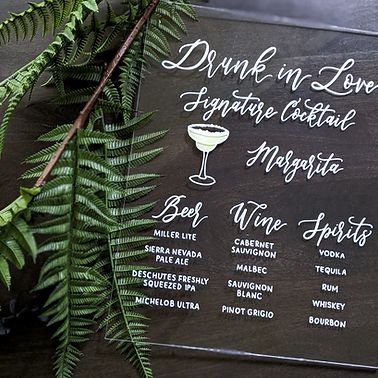 Drunk in Love
Signature Cocktail
Margarita
Beer
MILLER LITE
SIERRA NEVADA
PALE ALE
DESCHUTES FRESHLY
SQUEEZED IPA
MICHELOB ULTRA
Wine
CABERNET
SAUVIGNON
MALBEC
SAUVIGNON
BLANC
PINOT GRIGIO
Spirits
VODKA
TEQUILA
RUM
WHISKEY
BOURBON